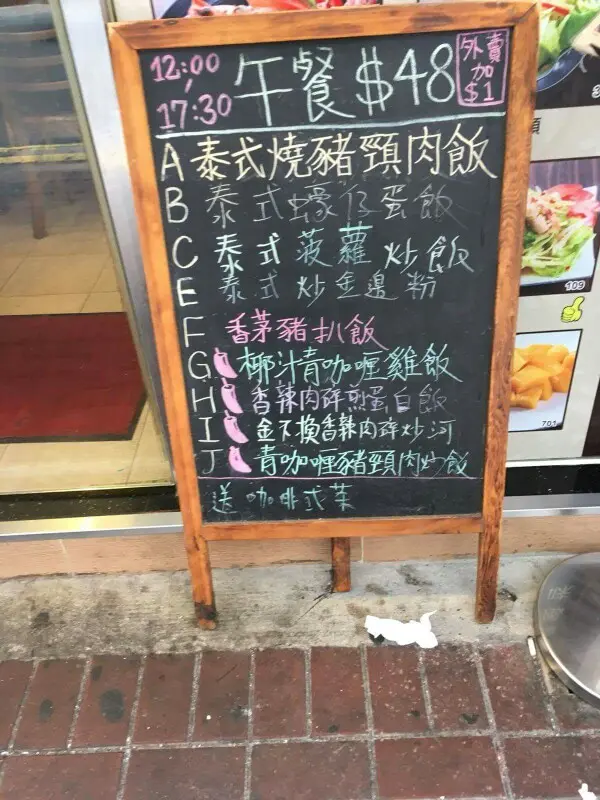 12:00
17:30
午餐 $48
外賣
加
$1
A 泰式燒豬頸肉飯
B 泰式蠔仔蛋飯
C 泰式菠蘿炒飯
E 泰式炒金邊粉
F 香茅豬扒飯
G 椰汁青咖喱雞飯
H 香辣肉碎煎蛋白飯
I 金不換香辣肉碎炒河
J 青咖喱豬頸肉炒飯
送咖啡式茶
109
701